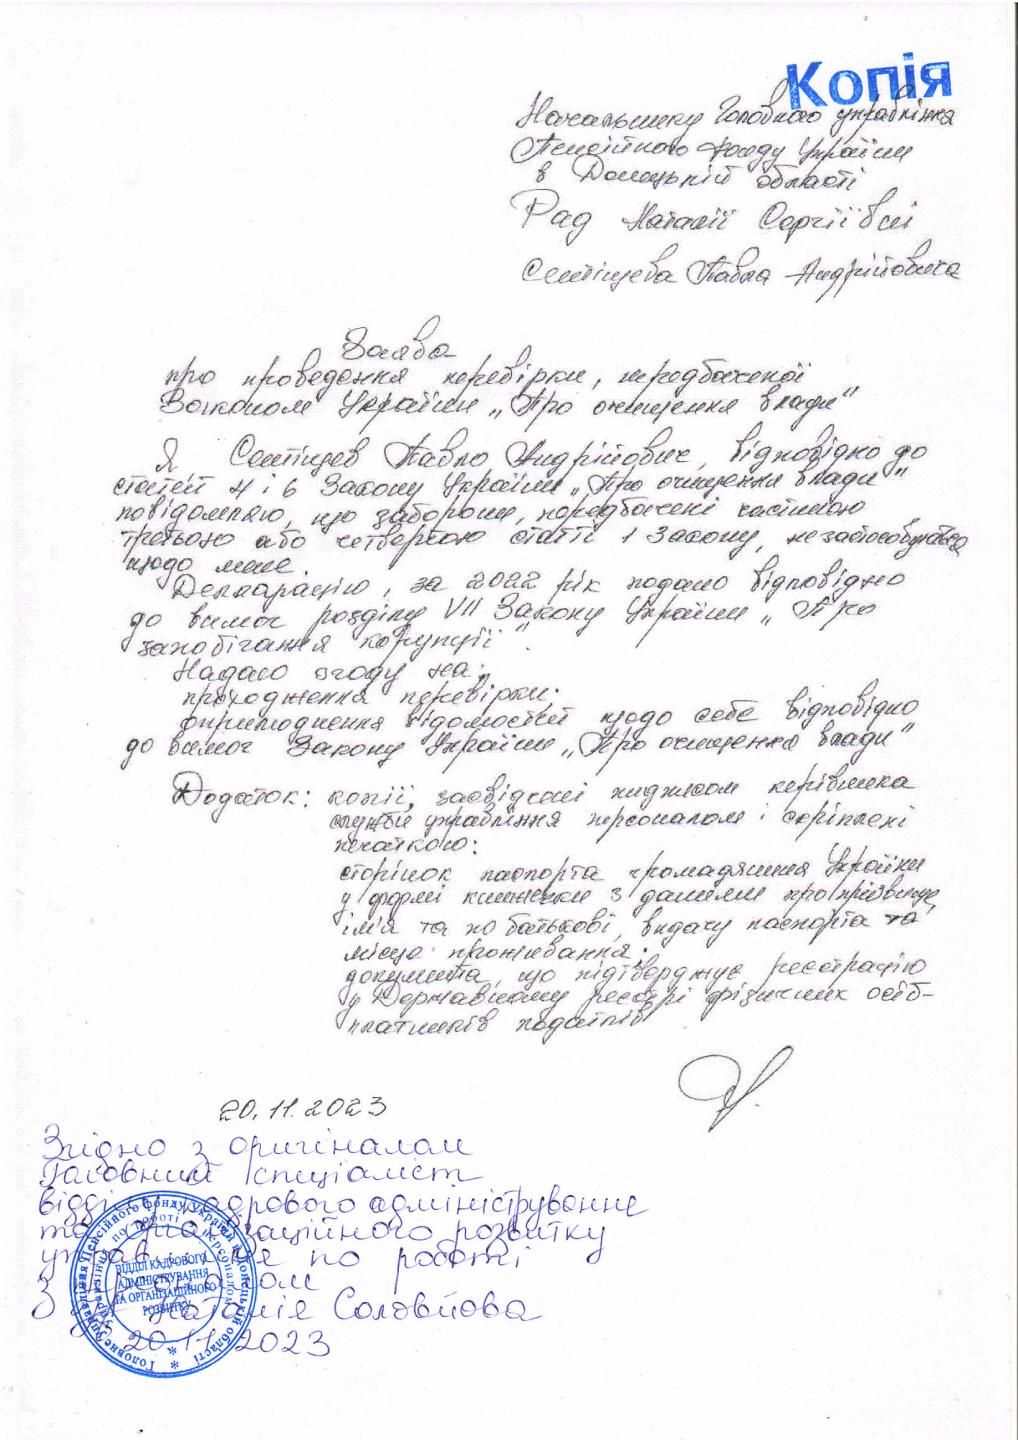 Копія
Начальнику Головного управління
Пенсійного фонду України
в Донецькій області
Рад Наталії Сергіївні
Сентіщева Павла Андрійовича
Заява
про проведення перевірки, передбаченої
Законом України „Про очищення влади"
Я Сентіщев Павло Андрійович, відповідно до
статей 4 і 6 Закону України „Про очищення влади"
повідомляю, що заборони, передбачені частиною
третьою або четвертою статті 1 Закону, не застосовуються
щодо мене.
Декларацію, за 2022 рік подано відповідно
до вимог розділу VII Закону України „Про
запобігання корупції".
Надаю згоду на:
проходження перевірки;
оприлюднення відомостей щодо себе відповідно
до вимог Закону України „Про очищення влади"
Додаток: копії, засвідчені підписом керівника
служби управління персоналом і скріплені
печаткою:
сторінок паспорта громадянина України
у формі книжечки з даними про прізвище,
ім'я та по батькові, видачу паспорта та
місце проживання;
документа, що підтверджує реєстрацію
у Державному реєстрі фізичних осіб-
платників податків
20.11.2023
Згідно з оригіналом
Головний спеціаліст
відділу кадрового адміністрування
та організаційного розвитку
управління по роботі
з персоналом
Наталія Соловйова
20.11.2023
Головне управління Пенсійного фонду України в Донецькій області
Управління по роботі з персоналом
ВІДДІЛ КАДРОВОГО
АДМІНІСТРУВАННЯ
ТА ОРГАНІЗАЦІЙНОГО
РОЗВИТКУ